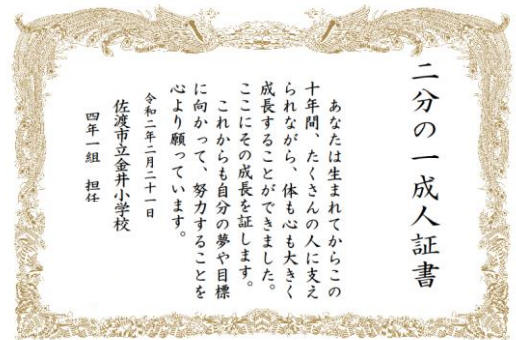 二分の一成人証書
あなたは生まれてからこの
十年間、たくさんの人に支え
られながら、体も心も大きく
成長することができました。
ここにその成長を証します。
これからも自分の夢や目標
に向かって、努力することを
心より願っています。
令和二年二月二十一日
佐渡市立金井小学校
四年一組　担任